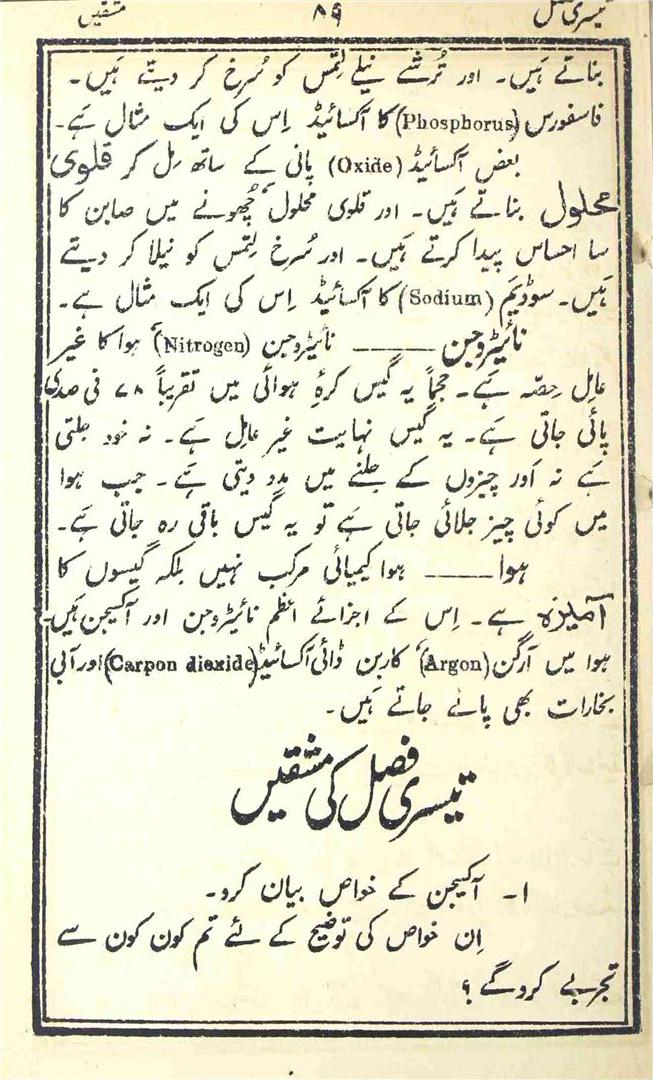 تیسری فصل ۸۹ مشقیں
بناتے ہیں۔ اور تُرشے نیلے لِتمَس کو سُرخ کر دیتے ہیں۔
فاسفورس (Phosphorus) کا آکسائیڈ اِس کی ایک مثال ہے۔
بعض آکسائیڈ (Oxide) پانی کے ساتھ مِل کر قلوی
محلول بناتے ہیں۔ اور قلوی محلول چُھونے میں صابن کا
سا احساس پیدا کرتے ہیں۔ اور سُرخ لِتمَس کو نیلا کر دیتے
ہیں۔ سوڈیَم (Sodium) کا آکسائیڈ اِس کی ایک مثال ہے۔
نائیٹروجن —— نائیٹروجن (Nitrogen) ہوا کا غیر
عامِل حِصّہ ہے۔ حجماً یہ گیس کرۂ ہوائی میں تقریباً ۷۸ فی صدی
پائی جاتی ہے۔ یہ گیس نہایت غیر عامِل ہے۔ نہ خود جلتی
ہے نہ اَور چیزوں کے جلنے میں مدد دیتی ہے۔ جب ہوا
میں کوئی چیز جلائی جاتی ہے تو یہ گیس باقی رہ جاتی ہے۔
ہوا —— ہوا کیمیائی مرکب نہیں بلکہ گیسوں کا
آمیزہ ہے۔ اِس کے اجزائے اعظم نائیٹروجن اور آکسیجن ہیں۔
ہوا میں آرگن (Argon) کاربن ڈائی آکسائیڈ (Carpon diexide) اور آبی
بخارات بھی پائے جاتے ہیں۔
تیسری فصل کی مشقیں
۱۔ آکسیجن کے خواص بیان کرو۔
اِن خواص کی توضیح کے لئے تم کون کون سے
تجربے کرو گے ؟